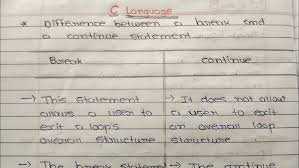 C Language
* Difference between a break and
a continue statement
Break
continue
→ This statement
allows a user to
exit a loops
overall structure
→ It does not allow
a user to exit
an overall loop
structure
→ The break
→ The continue